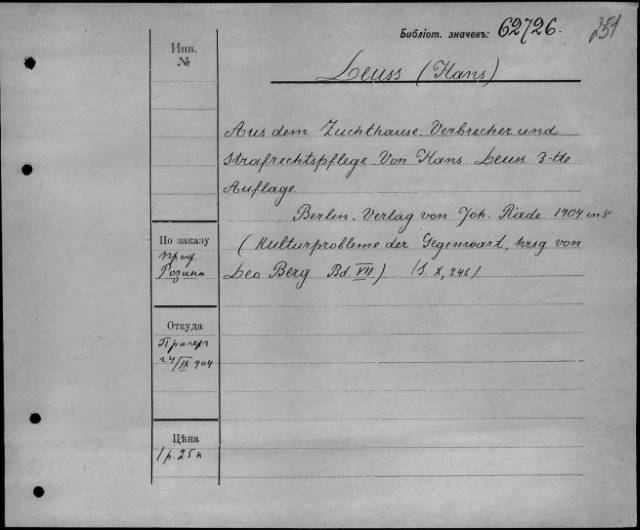 Библіот. значекъ: 62726. 251
Инв.
№
Leuss (Hans)
Aus dem Zuchthause. Verbrecher und
Strafrechtspflege. Von Hans Leuss 3-tte
Auflage.
Berlin. Verlag von Joh. Räde 1904 in 8
(Kulturprobleme der Gegenwart, hrsg von
Leo Berg Bd. VII) (S. X, 246)
По заказу
проф.
Розина
Откуда
Прагер
24/IX 904
Цѣна
1 р. 25 к